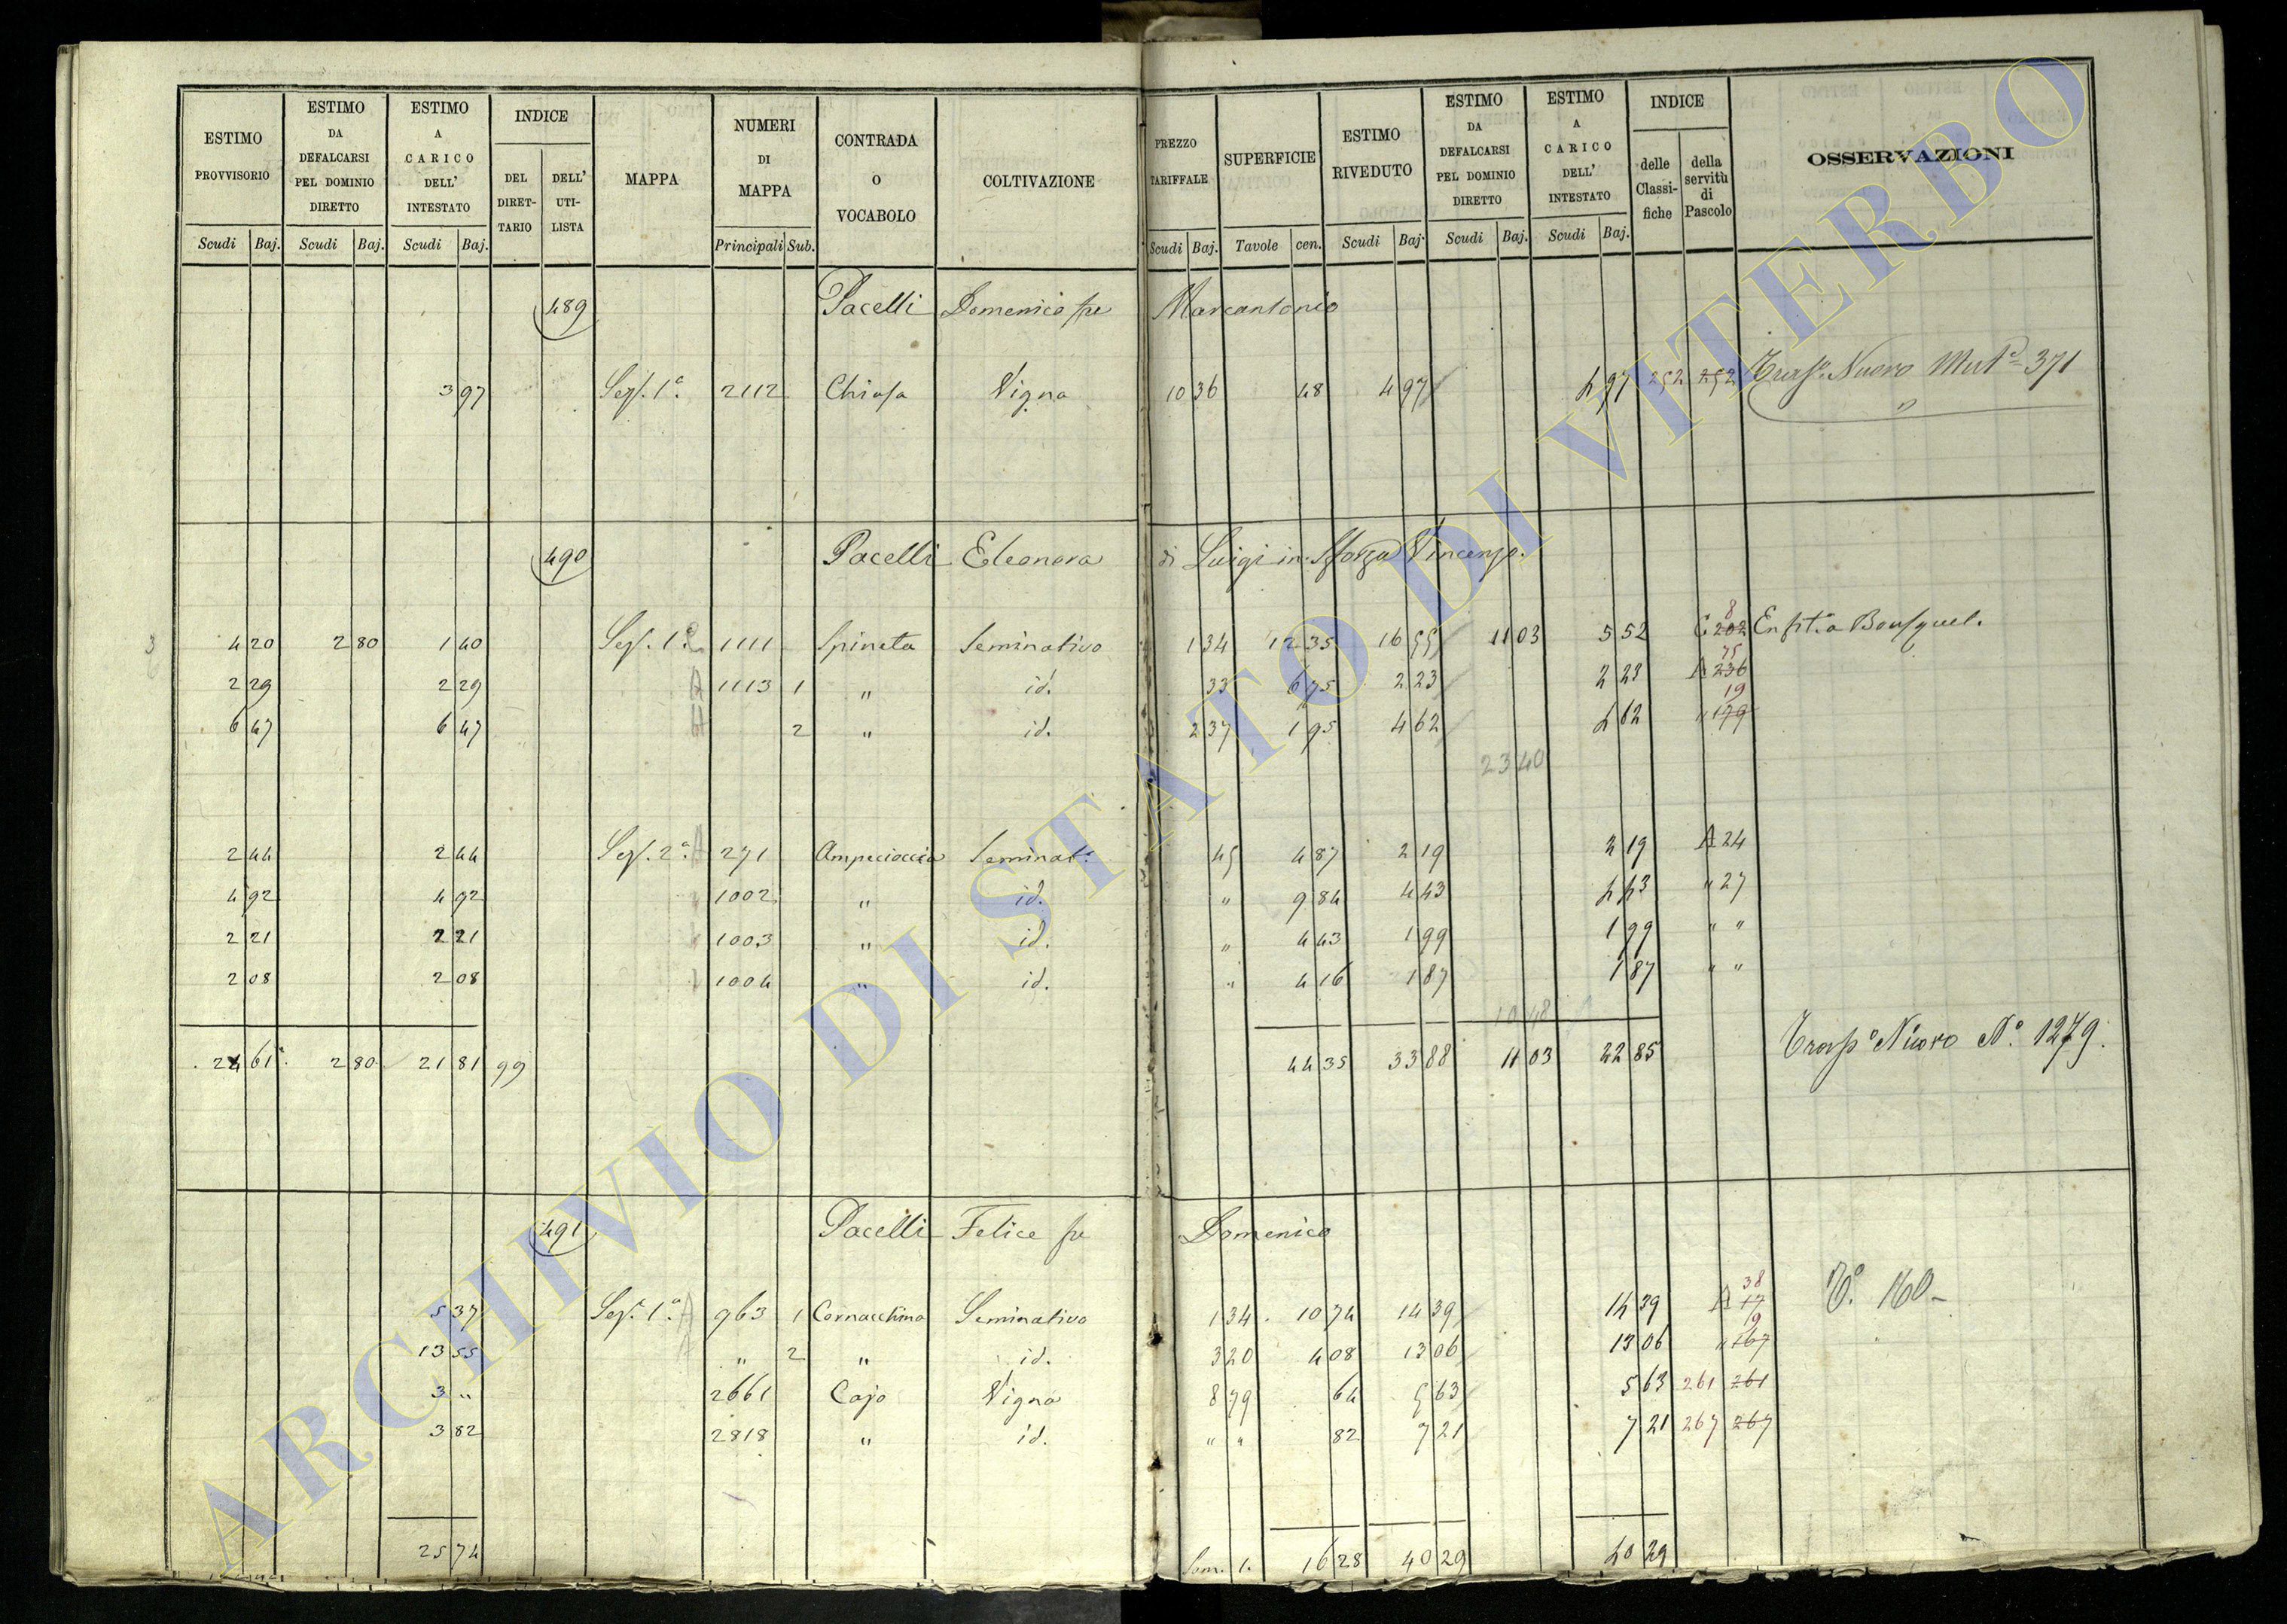 ESTIMO PROVVISORIO Scudi Baj. ESTIMO DA DEFALCARSI PEL DOMINIO DIRETTO Scudi Baj. ESTIMO A CARICO DELL' INTESTATO Scudi Baj. INDICE DEL DIRETTARIO DELL' UTILISTA MAPPA NUMERI DI MAPPA Principali Sub. CONTRADA O VOCABOLO COLTIVAZIONE PREZZO TARIFFALE Scudi Baj. SUPERFICIE Tavole cen. ESTIMO RIVEDUTO Scudi Baj. ESTIMO DA DEFALCARSI PEL DOMINIO DIRETTO Scudi Baj. ESTIMO A CARICO DELL' INTESTATO Scudi Baj. INDICE delle Classifiche della servitù di Pascolo OSSERVAZIONI
489 Pacelli Domenico fu Marcantonio
3 97 Sez. 1ª 2112 Chiusa Vigna 10 36 48 4 97 4 97 252 252 Trasp. Nuovo Mut. 371
490 Pacelli Eleonora di Luigi in Sforza Vincenzo.
4 20 2 80 1 40 Sez. 1ª 1111 Spineta Seminativo 1 34 12 35 16 55 11 03 5 52 C 202 8 Enfit.
2 29 2 29 1113 1 " id. 33 6 75 2 23 2 23 A 236 75
6 47 6 47 2 " id. 2 37 1 95 4 62 4 62 " 179 19
23 40
2 44 2 44 Sez. 2ª A 271 Ampiciaccia Seminat. 45 4 87 2 19 2 19 A 24
4 92 4 92 1002 " id. " 9 84 4 43 4 43 " 27
2 21 2 21 1003 " id. " 4 43 1 99 1 99 " "
2 08 2 08 1004 " id. " 4 16 1 87 1 87 " "
10 48
24 61 2 80 21 81 99 44 35 33 88 11 03 22 85 Trasp. Nuovo N.º 1279.
491 Pacelli Felice fu Domenico
5 37 Sez. 1ª A 963 1 Cornacchino Seminativo 1 34 10 74 14 39 14 39 A 17 38
13 55 " 2 " id. 3 20 4 08 13 06 13 06 " 167 19
3 " 2661 Cajo Vigna 8 79 64 5 63 5 63 261 261
3 82 2818 " id. " " 82 7 21 7 21 267 267
25 74 16 28 40 29 40 29
ARCHIVIO DI STATO DI VITERBO